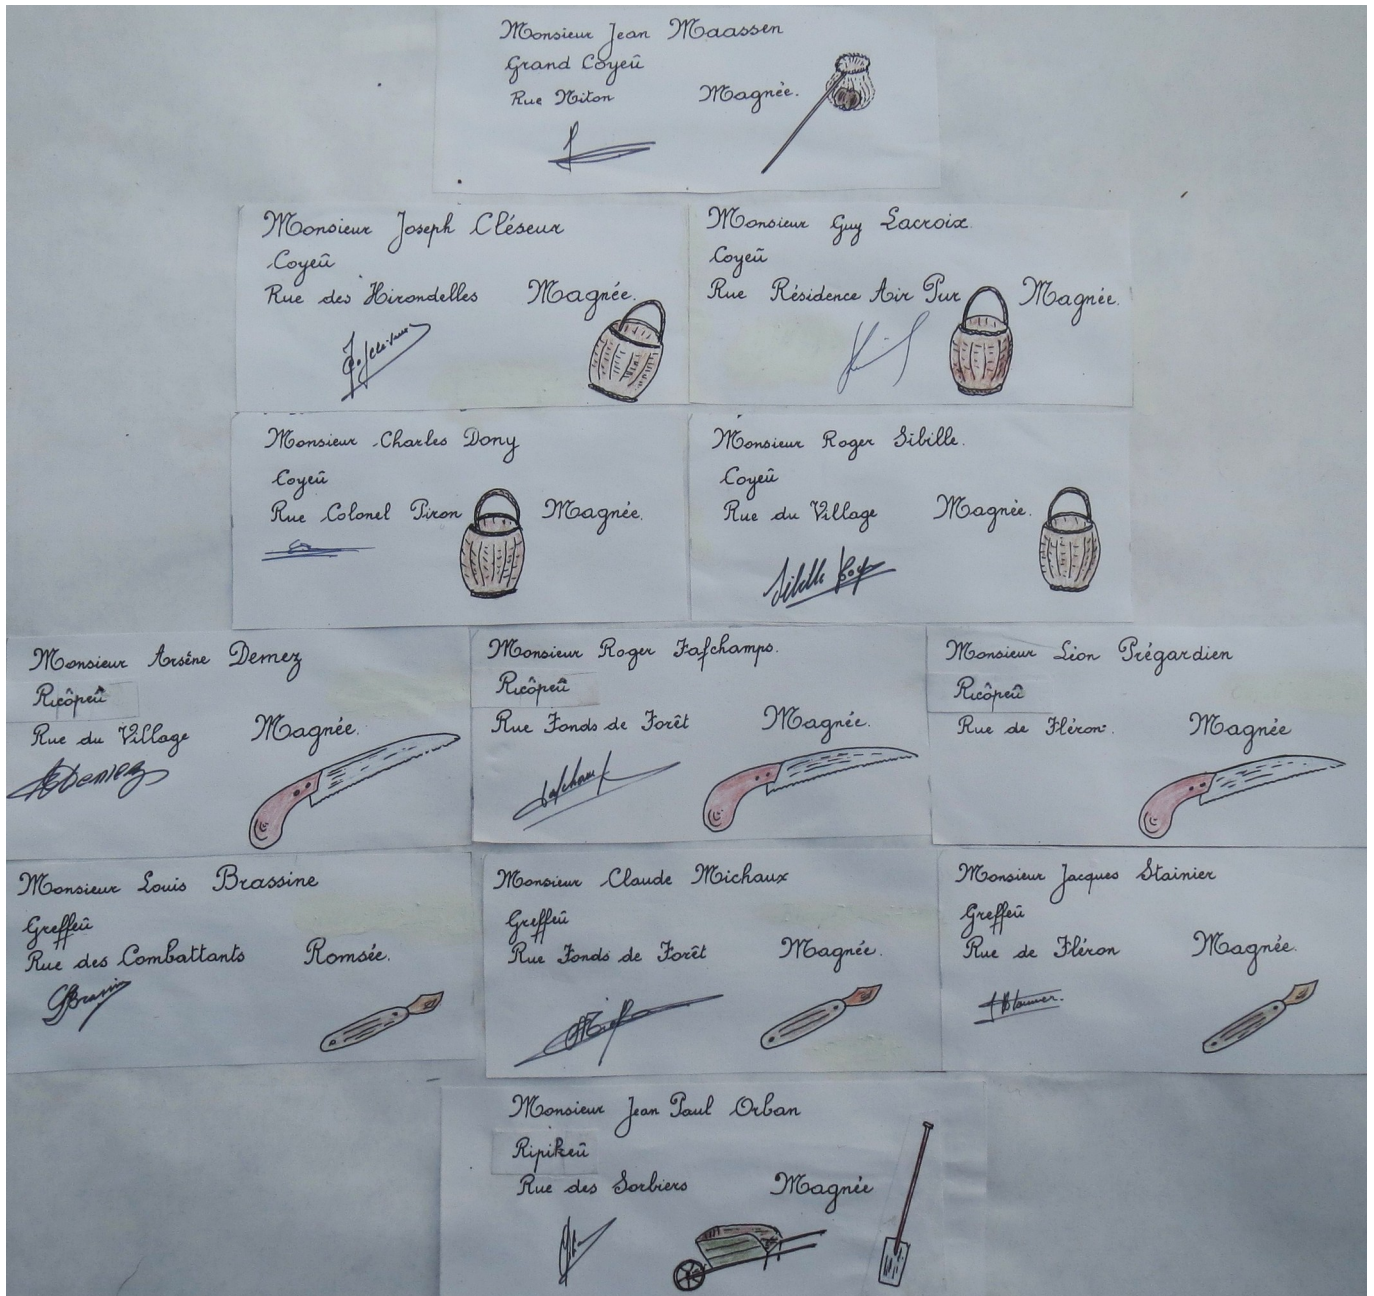 Monsieur Jean Maassen
Grand Coyeû
Rue Niton Magnée.
Monsieur Joseph Cléseur
Coyeû
Rue des Hirondelles Magnée.
Monsieur Guy Lacroix
Coyeû
Rue Résidence Air Pur Magnée.
Monsieur Charles Dony
Coyeû
Rue Colonel Piron Magnée.
Monsieur Roger Sibille.
Coyeû
Rue du Village Magnée.
Sibille
Monsieur Arsène Demez
Ricôpeû
Rue du Village Magnée.
Demez
Monsieur Roger Fafchamps.
Ricôpeû
Rue Fonds de Forêt Magnée.
Monsieur Léon Prégardien
Ricôpeû
Rue de Fléron. Magnée
Monsieur Louis Brassine
Greffeû
Rue des Combattants Romsée.
Monsieur Claude Michaux
Greffeû
Rue Fonds de Forêt Magnée.
Monsieur Jacques Stainier
Greffeû
Rue de Fléron Magnée.
Monsieur Jean Paul Orban
Ripikeû
Rue des Sorbiers Magnée